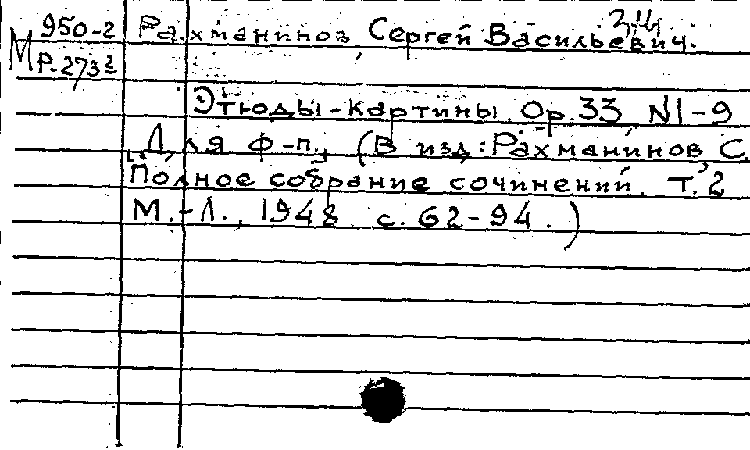 34
950-2 Рахманинов, Сергей Васильевич.
М Р-273²
Этюды-картины. Op. 33, N1-9
Для ф-п. (В изд.: Рахманинов С.
Полное собрание сочинений. Т. 2
М.-Л., 1948 с. 62-94.)